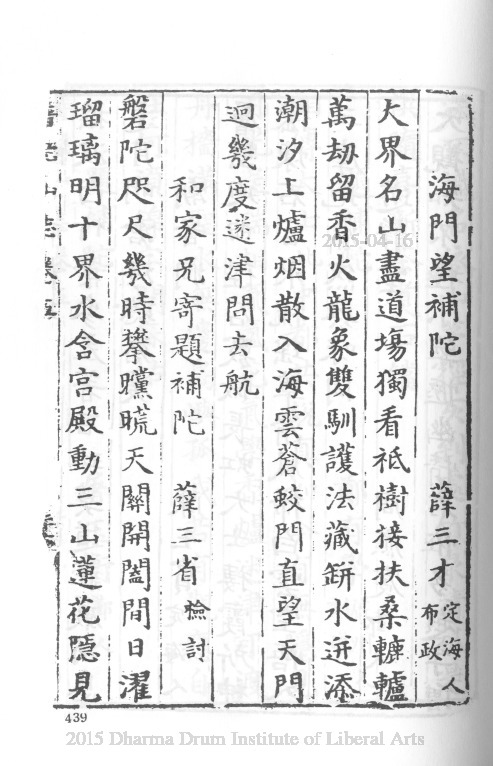 海門望補陀 薛三才 定海人
布政
大界名山盡道場獨看祗樹接扶桑轆轤
萬劫留香火龍象雙馴護法藏缾水迸添
潮汐上爐烟散入海雲蒼蛟門直望天門
迥幾度迷津問去航
和家兄寄題補陀 薛三省 檢討
磐陀咫尺幾時攀曭㬻天關開闔間日濯
瑠璃明十界水含宫殿動三山蓮花隱見
439
2015-04-16
2015 Dharma Drum Institute of Liberal Arts